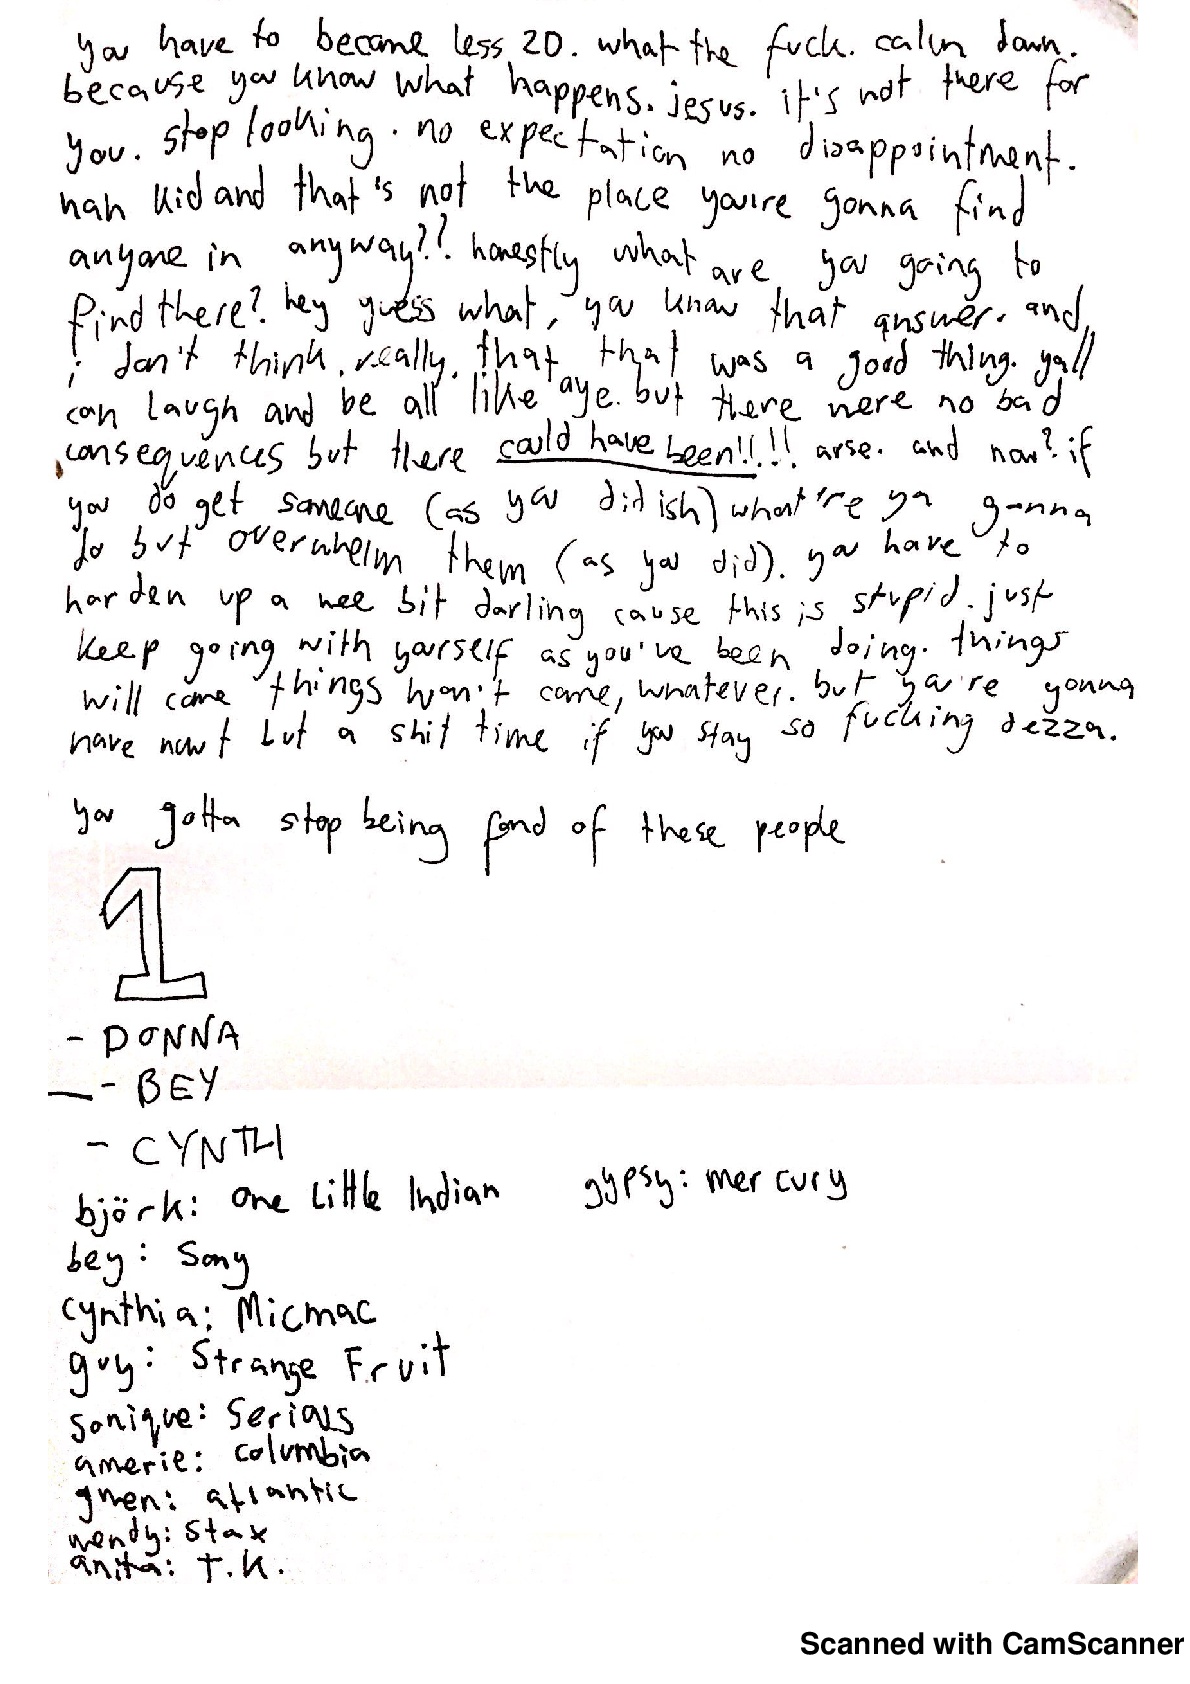 you have to become less 20. what the fuck. calm down.
because you know what happens. jesus. it's not there for
you. stop looking. no expectation no disappointment.
nah kid and that's not the place you're gonna find
anyone in anyway?? honestly what are you going to
find there? hey guess what, you know that answer. and,
i don't think, really, that that was a good thing. yall
can laugh and be all like aye. but there were no bad
consequences but there could have been!!!! arse. and now? if
you do get someone (as you did ish) what're ya gonna
do but overwhelm them (as you did). you have to
harden up a wee bit darling cause this is stupid. just
keep going with yourself as you've been doing. things
will come things won't come, whatever. but you're gonna
have nowt but a shit time if you stay so fucking dezza.
you gotta stop being fond of these people
1
- DONNA
- BEY
- CYNTH
björk: One Little Indian gypsy: mercury
bey: Sony
cynthia: Micmac
guy: Strange Fruit
sonique: Serious
amerie: columbia
gwen: atlantic
wendy: Stax
anita: T.K.
Scanned with CamScanner